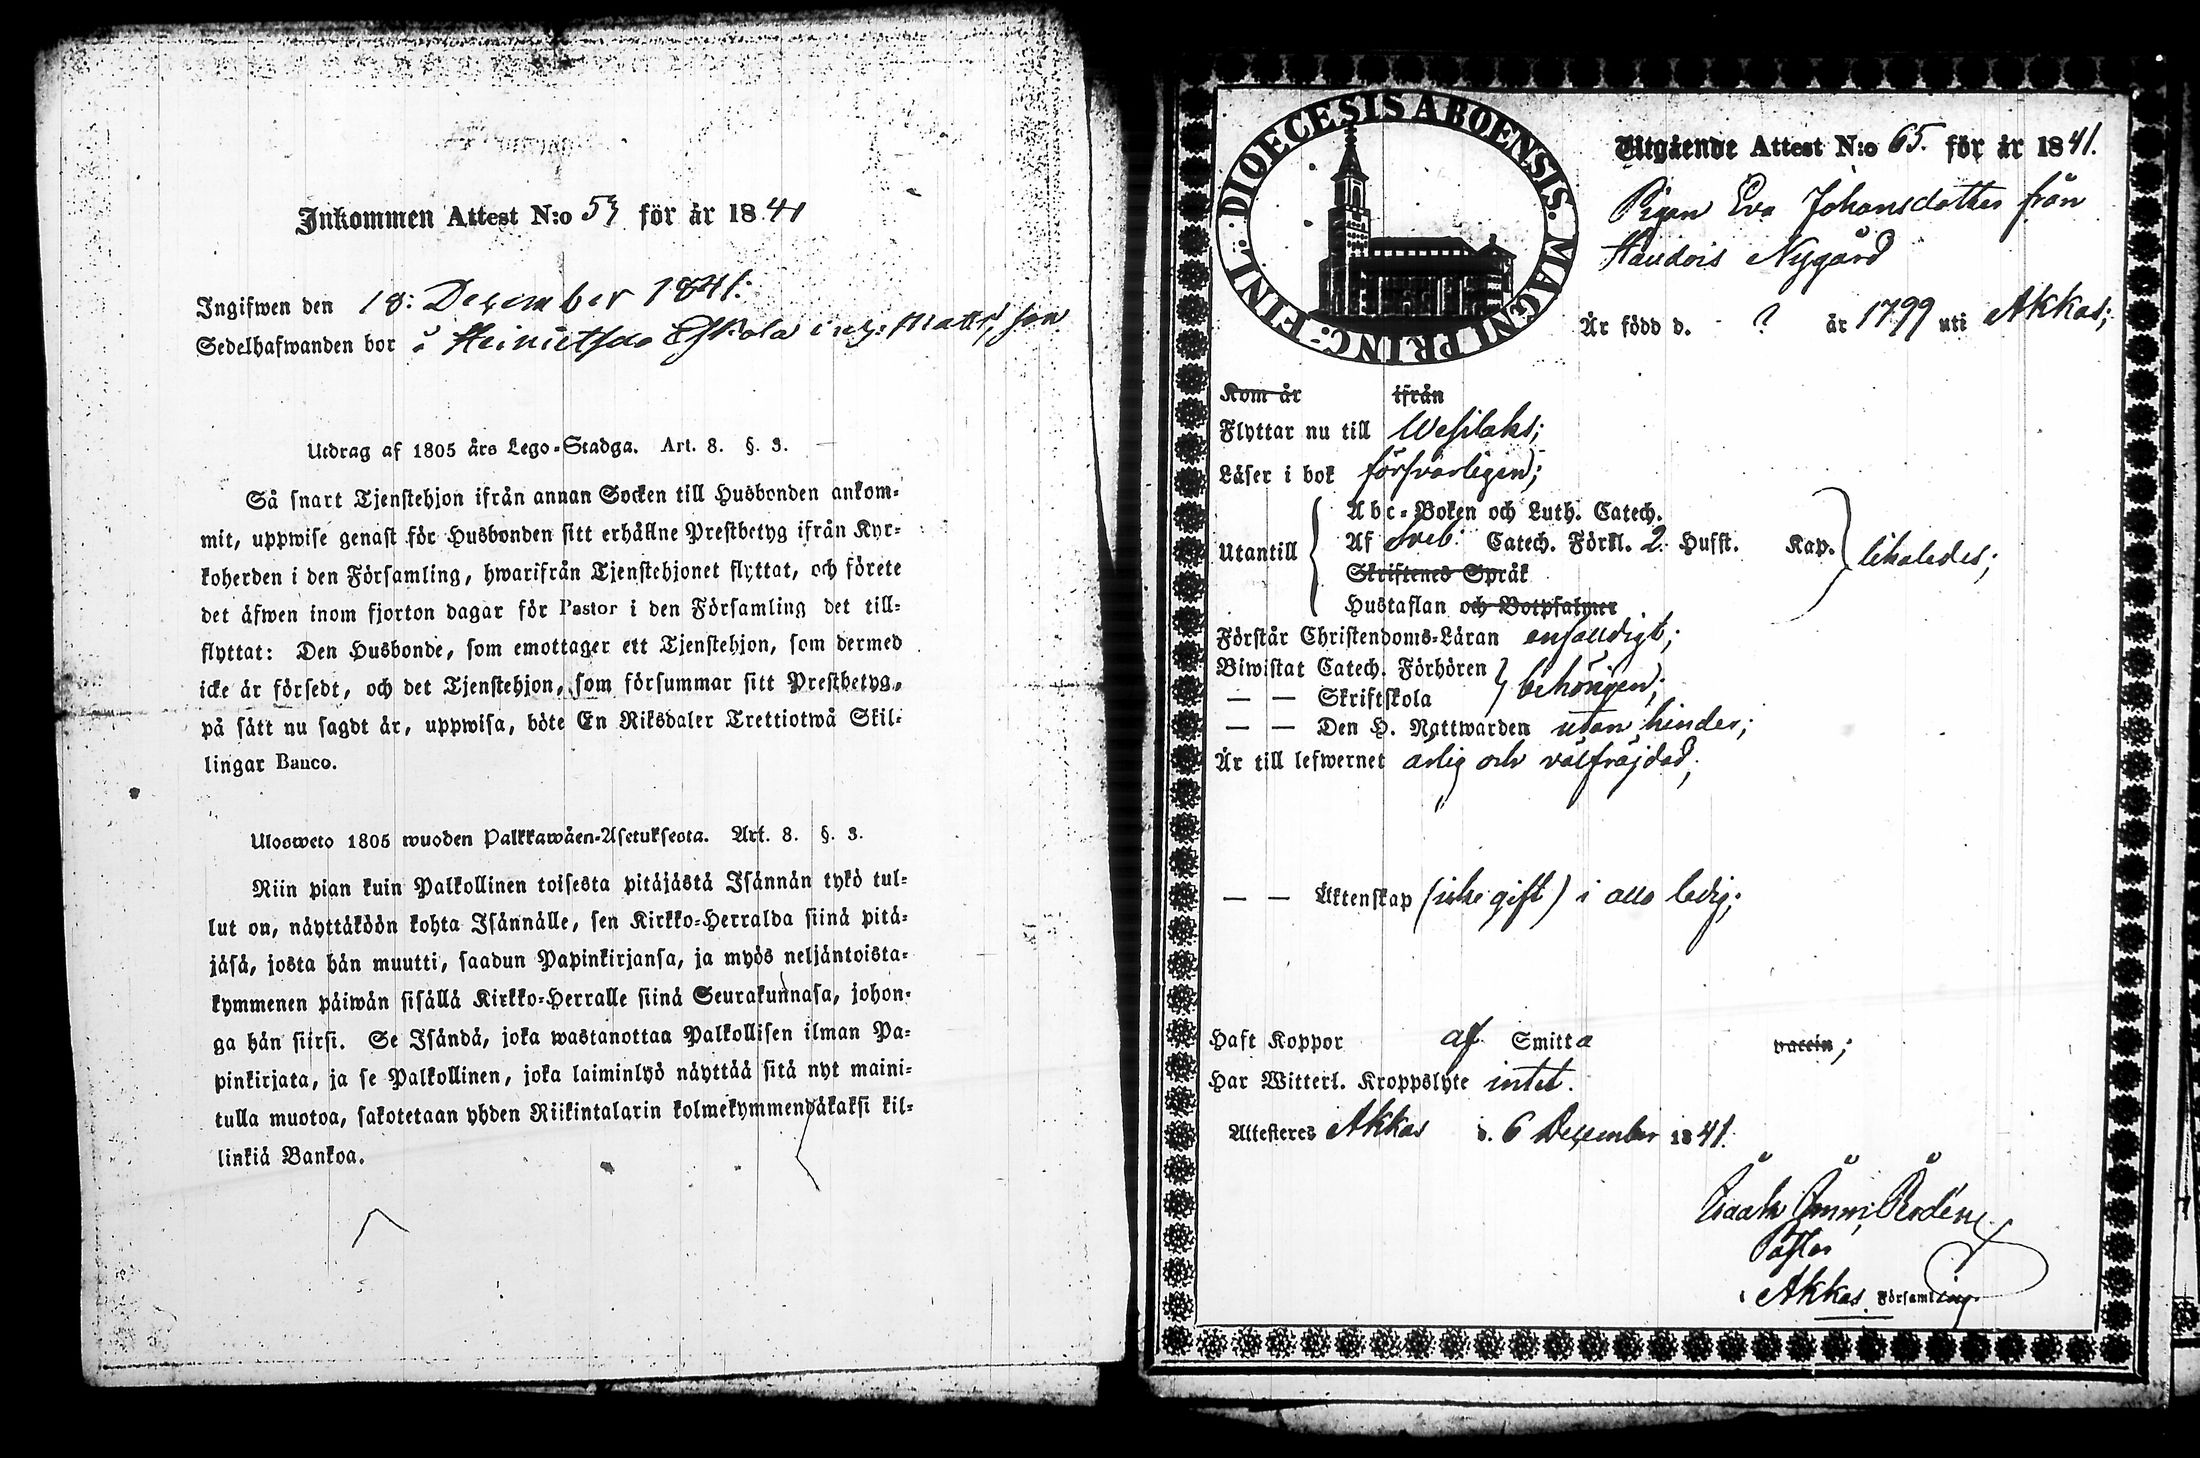 Inkommen Attest N:o 53 för år 1841
Ingifwen den 18: December 1841:
Sedelhafwanden bor i Eskola
Utdrag af 1805 års Lego-Stadga. Art. 8. §. 3.
Så snart Tjenstehjon ifrån annan Socken till Husbonden ankom-
mit, uppwise genast för Husbonden sitt erhållne Prestbetyg ifrån Kyr-
koherden i den Församling, hwarifrån Tjenstehjonet flyttat, och förete
det äfwen inom fjorton dagar för Pastor i den Församling det till-
flyttat: Den Husbonde, som emottager ett Tjenstehjon, som dermed
icke är försedt, och det Tjenstehjon, som försummar sitt Prestbetyg,
på sätt nu sagdt är, uppwisa, böte En Riksdaler Trettiotwå Skil-
lingar Banco.
Ulosweto 1805 wuoden Palkkawäen-Asetuksesta. Art. 8. §. 3.
Niin pian kuin Palkollinen toisesta pitäjästä Isännän tykö tul-
lut on, näyttäköön kohta Isännälle, sen Kirkko-Herralda siinä pitä-
jäsä, josta hän muutti, saadun Papinkirjansa, ja myös neljäntoista-
kymmenen päiwän sisällä Kirkko-Herralle siinä Seurakunnasa, johon-
ga hän siirsi. Se Isändä, joka wastanottaa Palkollisen ilman Pa-
pinkirjata, ja se Palkollinen, joka laiminlyö näyttää sitä nyt maini-
tulla muotoa, sakotetaan yhden Riikintalarin kolmekymmendäkaksi kil-
linkiä Bankoa.
DIOECESIS ABOENSIS. MAGNI PRINC: FINL.
Utgående Attest N:o 65. för år 1841.
Pigan Eva Johansdotter från
Haudois Nygård
Är född d. ? år 1799 uti Akkas;
Kom år ifrån
Flyttar nu till Wesilaks;
Läser i bok försvarligen;
Abc-Boken och Luth. Catech.
Utantill Af Sveb. Catech. Förkl. 2 Husst. Kap. likaledes;
Skriftenes Språk
Hustaflan och Botpsalmer
Förstår Christendoms-Läran enfalldigt;
Biwistat Catech. Förhören behörigen;
— — Skriftskola
— — Den H. Nattwarden utan hinder;
Är till lefwernet ärlig och välfräjdad;
— — Äktenskap (icke gift) i allo ledig;
Haft Koppor af Smitta vaccin;
Har Witterl. Kroppslyte intet.
Attesteres Akkas d. 6 December 1841.
Rodén
Pastor
i Akkas Församling